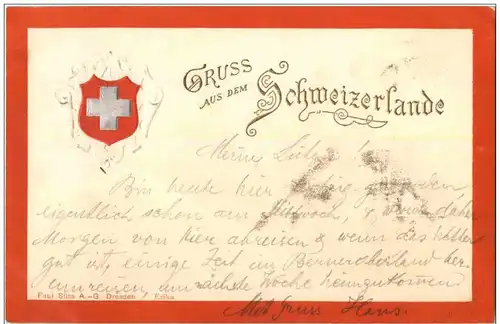 GRUSS
AUS DEM
Schweizerlande
Meine Liebe
Bin heute hier
eigentlich schon am Mittwoch, werde daher
Morgen von hier abreisen & wenn das Wetter
gut ist, einige Zeit im Berneroberland her-
umreisen, um nächste Woche heimzukommen
Paul Süss A.-G. Dresden Erika
Mit Gruss Hans.